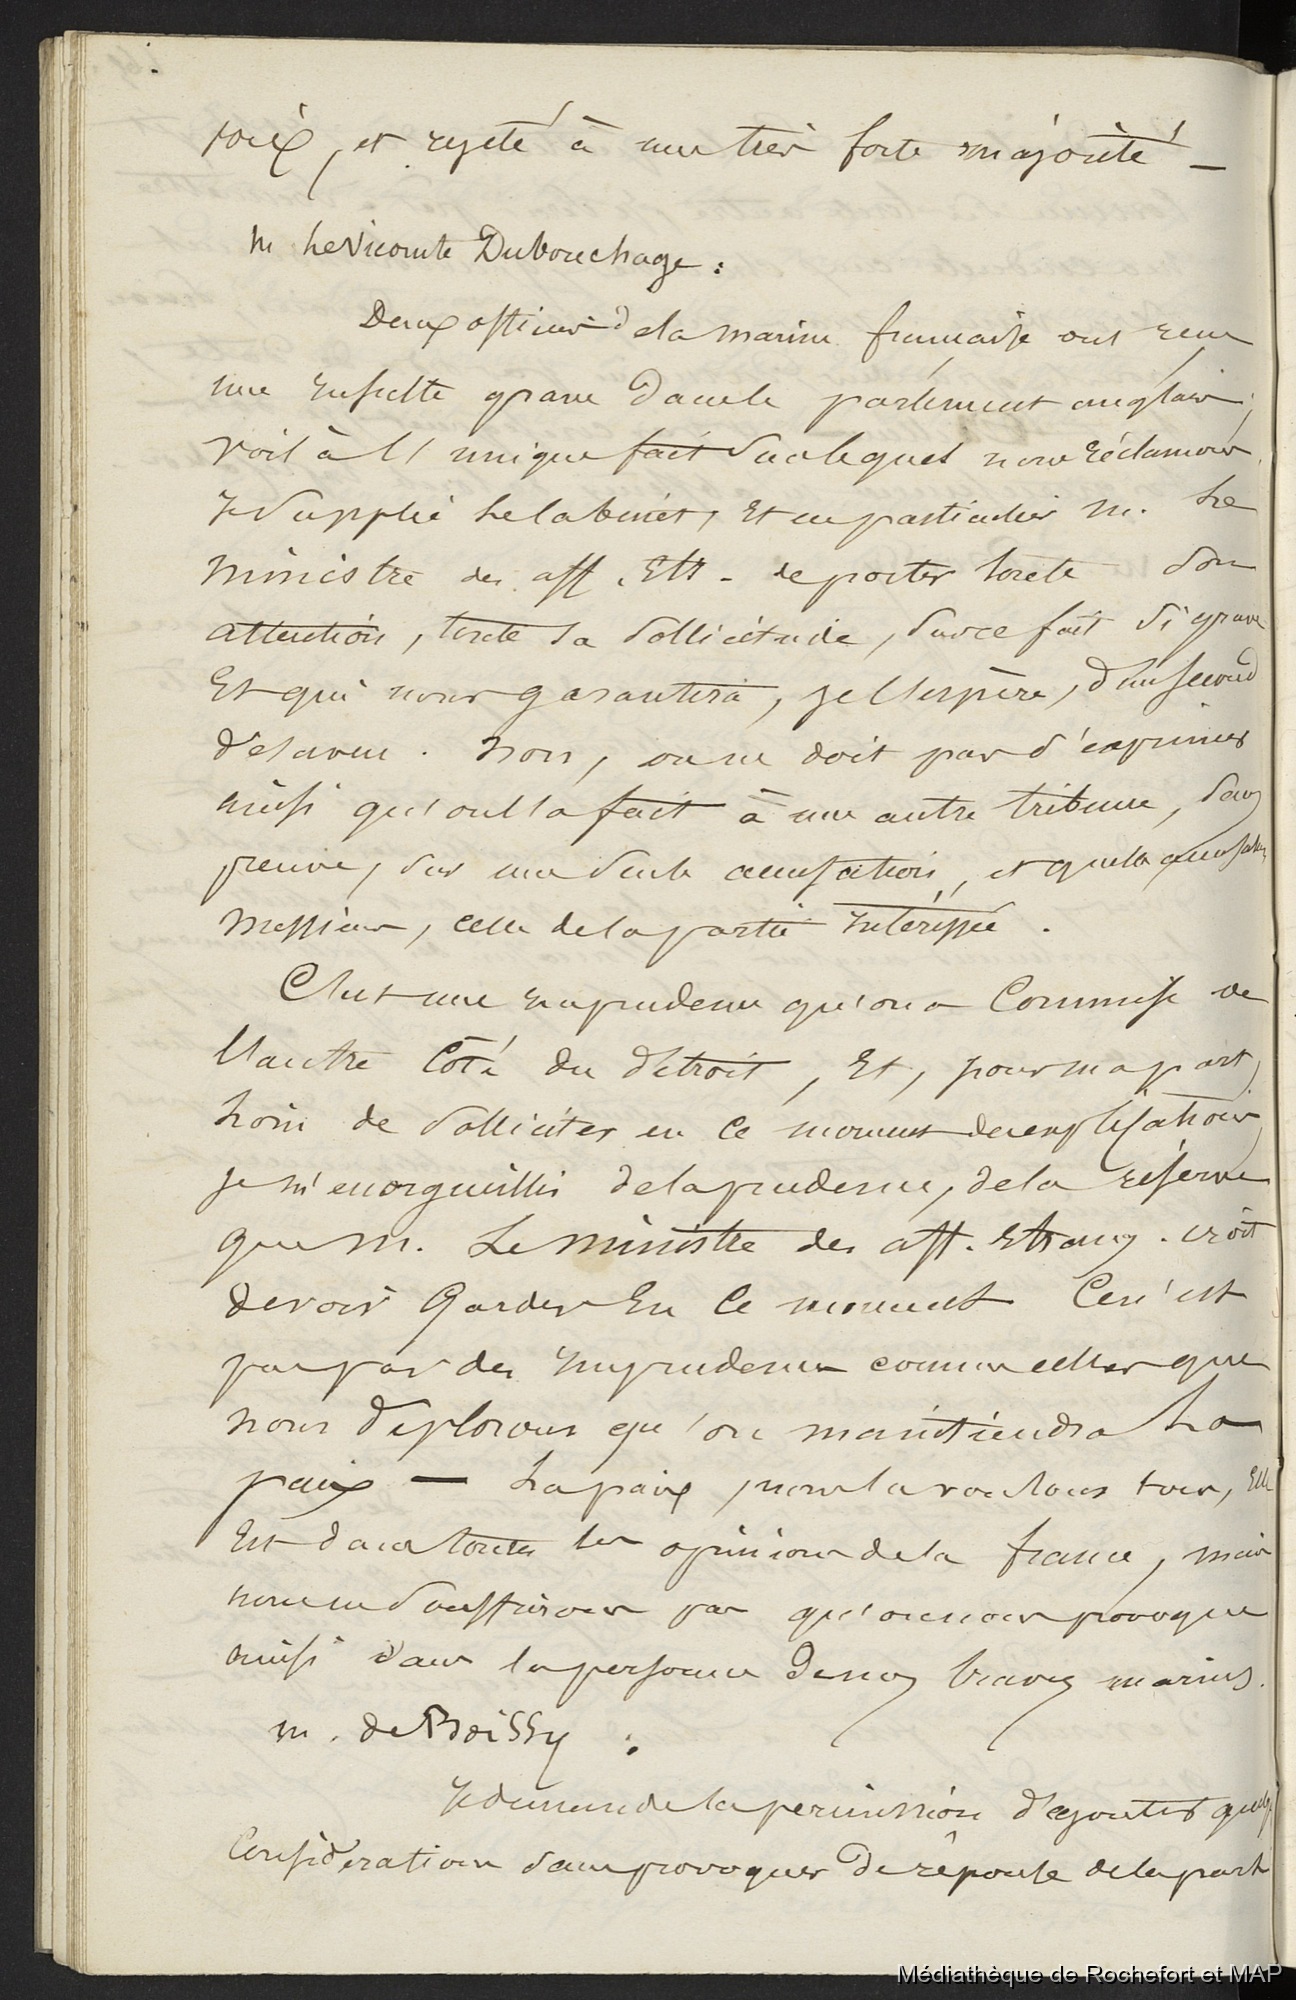 voix, et rejeté à une très forte majorité —
M Le Vicomte Dubouchage :
Deux officiers de la marine française ont recu
une insulte grave dans le parlement anglais,
voilà l'unique fait sur lequel nous réclamons.
Je supplie le cabinet, Et en particulier M. Le
ministre des aff. Etr. de porter toute son
attention, toute sa sollicitude, sur ce fait si grave
Et qui nous garantira, je l'espère, d'un second
désaveu. Non, on ne doit pas s'exprimer
ainsi qu'on l'a fait à une autre tribune, sans
preuve, sur une seule accusation, et quelle accusation,
Messieurs, celle de la partie intéressée.
C'est une imprudence qu'on a Commise de
l'autre Côté du détroit, Et, pour ma part,
Loin de solliciter en Ce moment des explications,
je m'enorgueillis de la prudence, de la réserve
que M. Le ministre des aff. Etrang. croit
devoir Garder En Ce moment Ce n'est
pas par des imprudences comme celles que
nous déplorons qu'on maintiendra La
paix — La paix, nous la voulons tous, Elle
Est dans toutes les opinions de la france, mais
nous ne souffrirons pas qu'on nous provoque
ainsi dans la personne de nos braves marins.
M. de Boissy :
Je demande la permission d'ajouter quelqs
Considérations sans provoquer de réponse de la part
Médiathèque de Rochefort et MAP